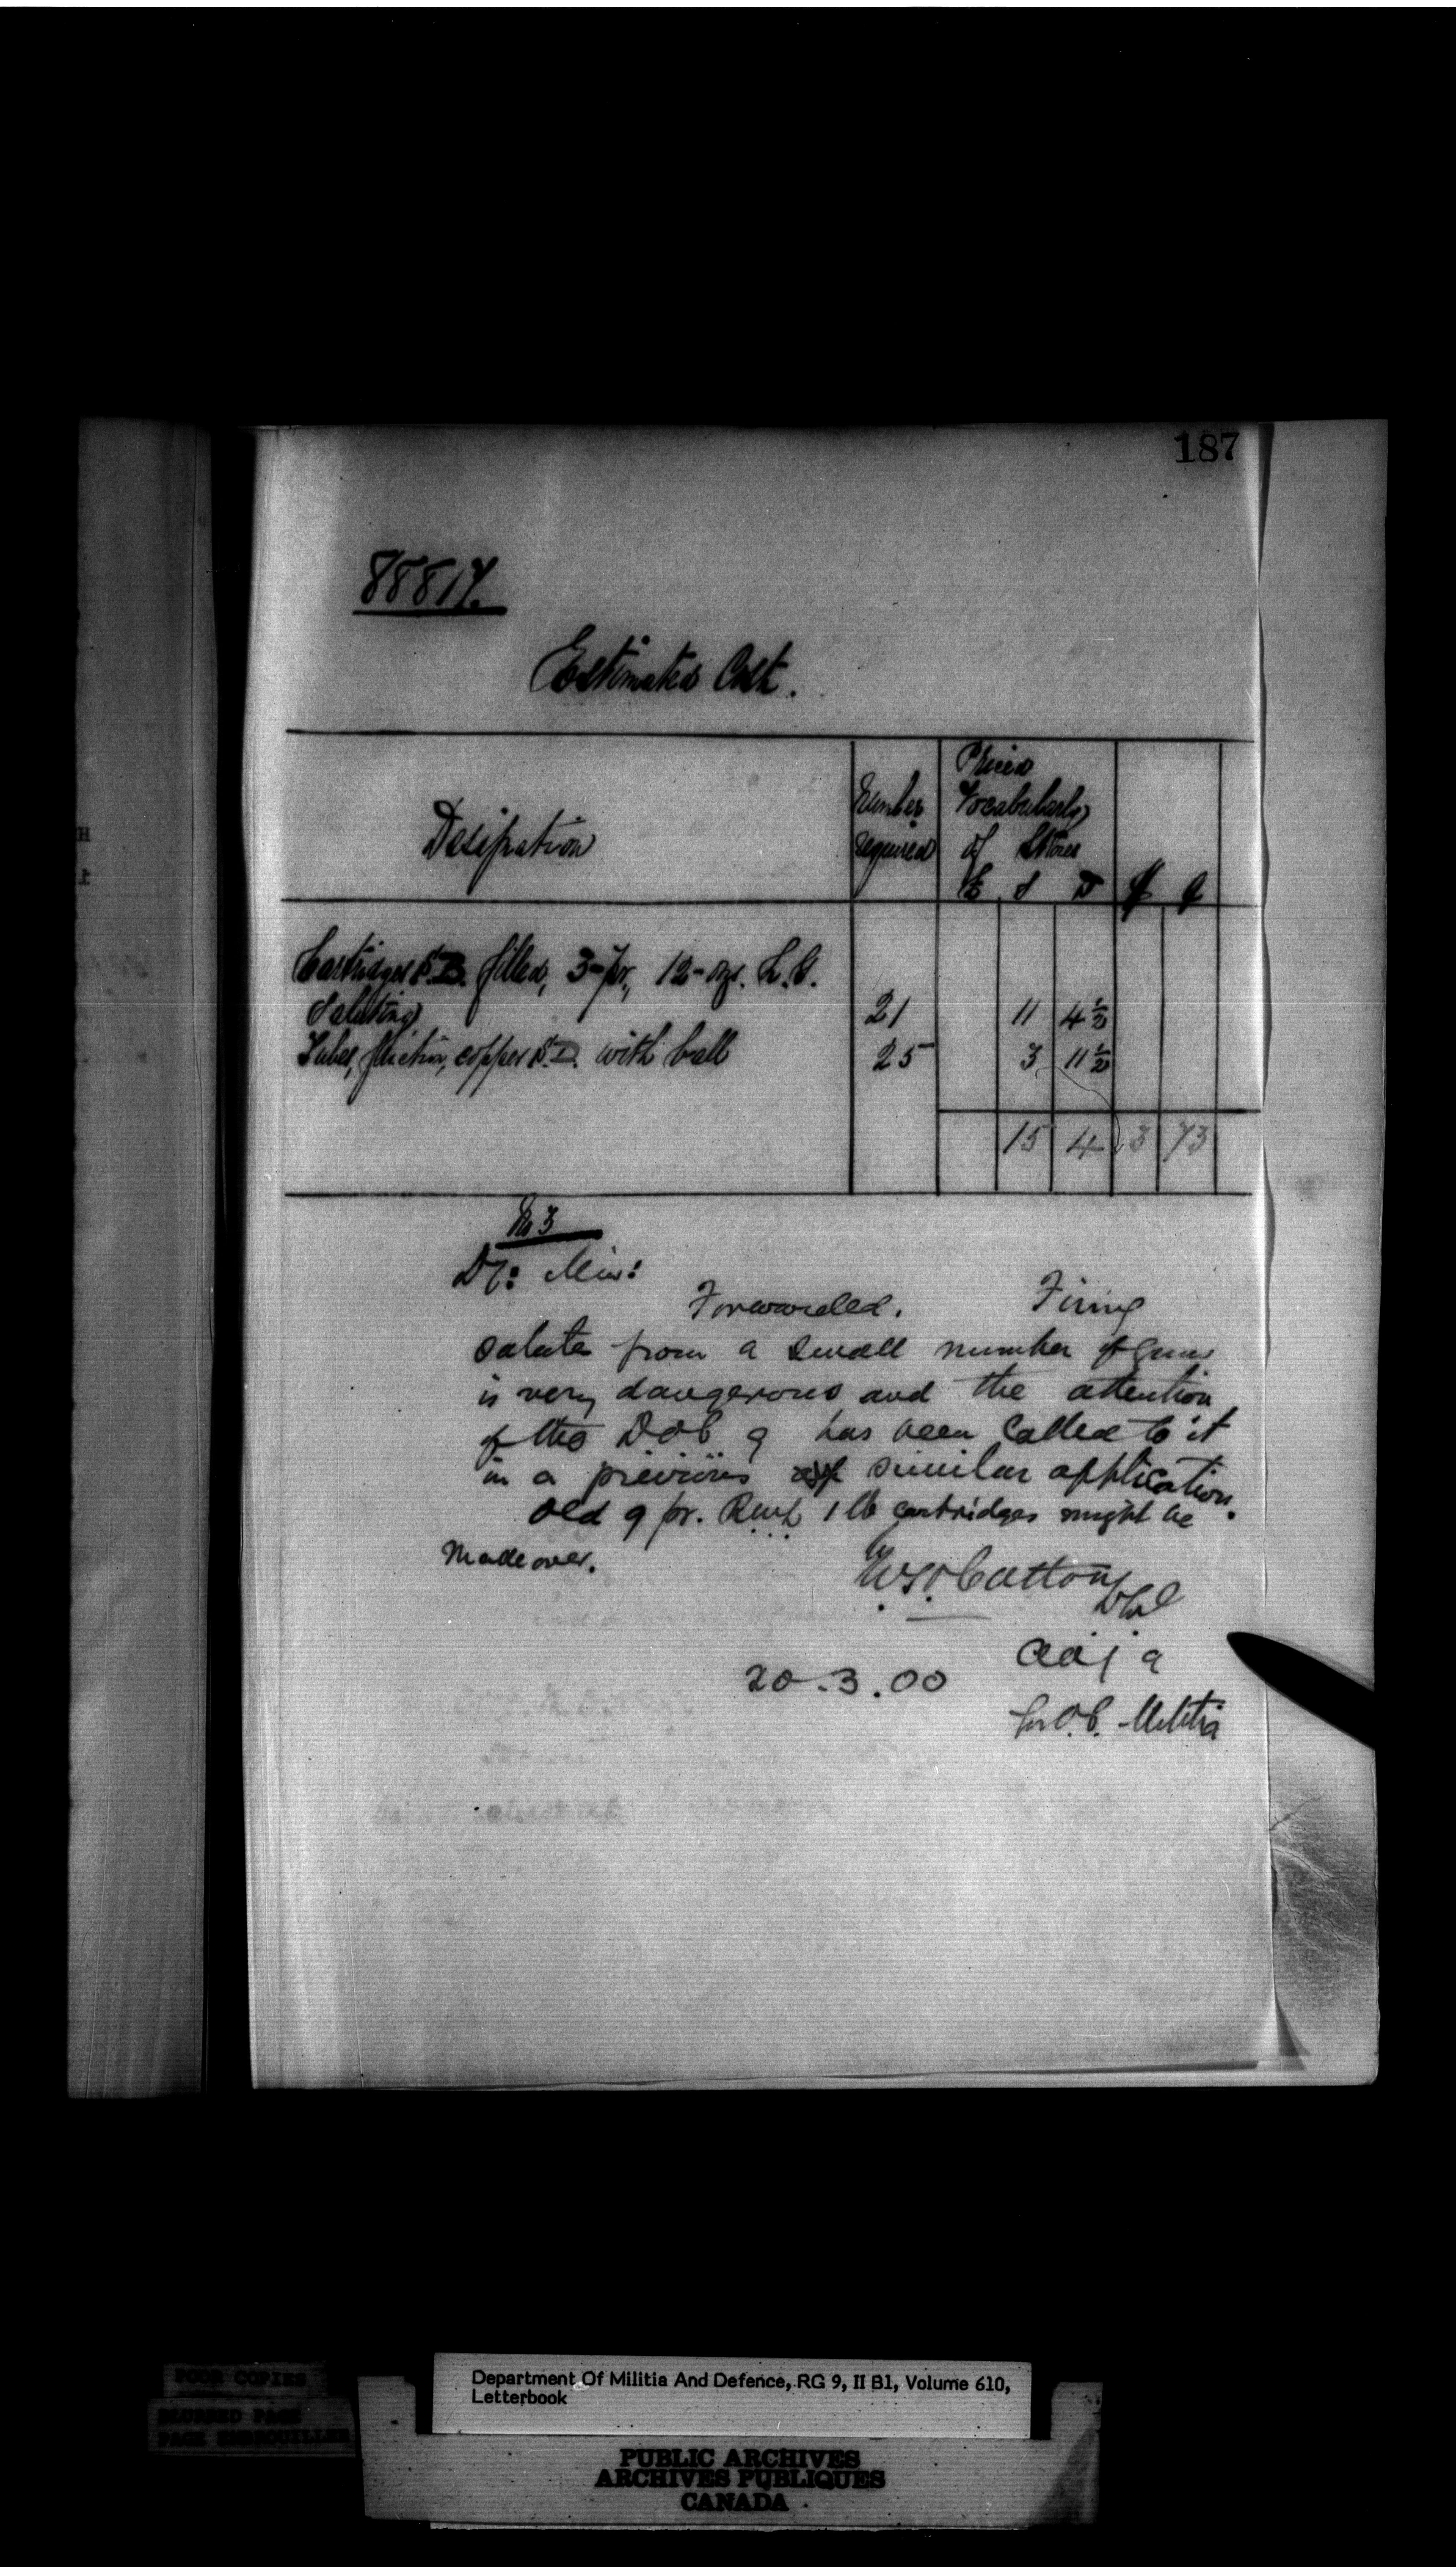 187
88817.
Estimated Cost.
Desipation
Number
required
Priced
Vocabulary
of Stores
£ S D $ ¢
Cartridges S.B. filled, 3-pr., 12-ozs. L.G.
Saluting 21 11 4½
Tubes, friction, copper S.D. with ball 25 3 11½
15 4 3 73
No 3
Dy: Min:
Forwarded. Firing
salutes from a small number of guns
is very dangerous and the attention
of the D O C 9 has been called to it
in a previous similar application.
Old 9 pr. 1 lb cartridges might be
made over.
Cotton
20.3.00
for O.C. Militia
Department Of Militia And Defence, RG 9, II B1, Volume 610,
Letterbook
POOR COPIES
BLURRED PAGE
PAGE EMBROUILLEE
PUBLIC ARCHIVES
ARCHIVES PUBLIQUES
CANADA